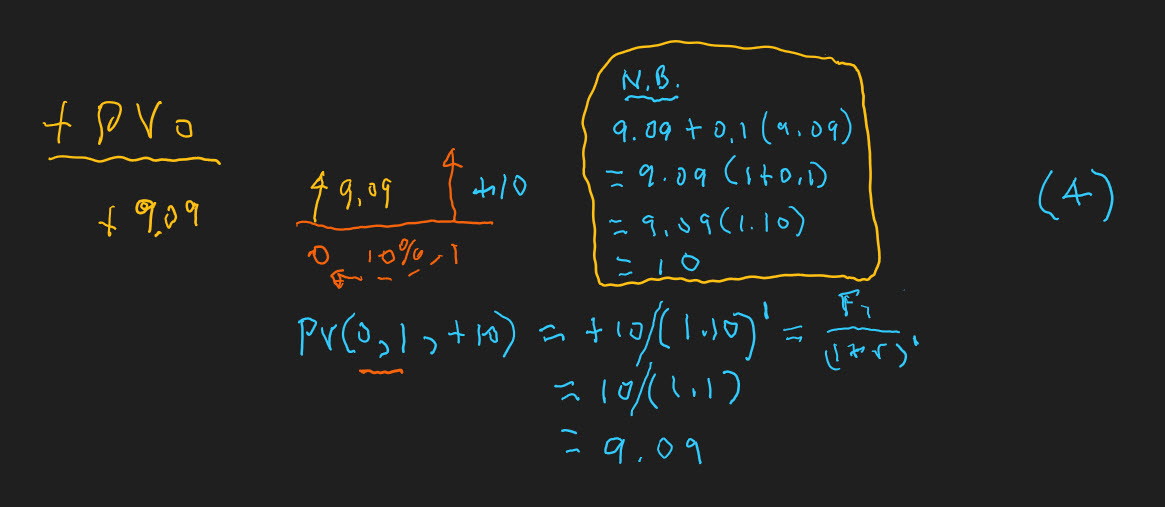 + PV0
+ 9.09
9.09
+10
0 10% 1
N.B.
9.09 + 0.1 (9.09)
= 9.09 (1+0.1)
= 9.09 (1.10)
= 10
(4)
PV(0,1,+10) = +10/(1.10)¹ = F₁/(1+r)¹
= 10/(1.1)
= 9.09